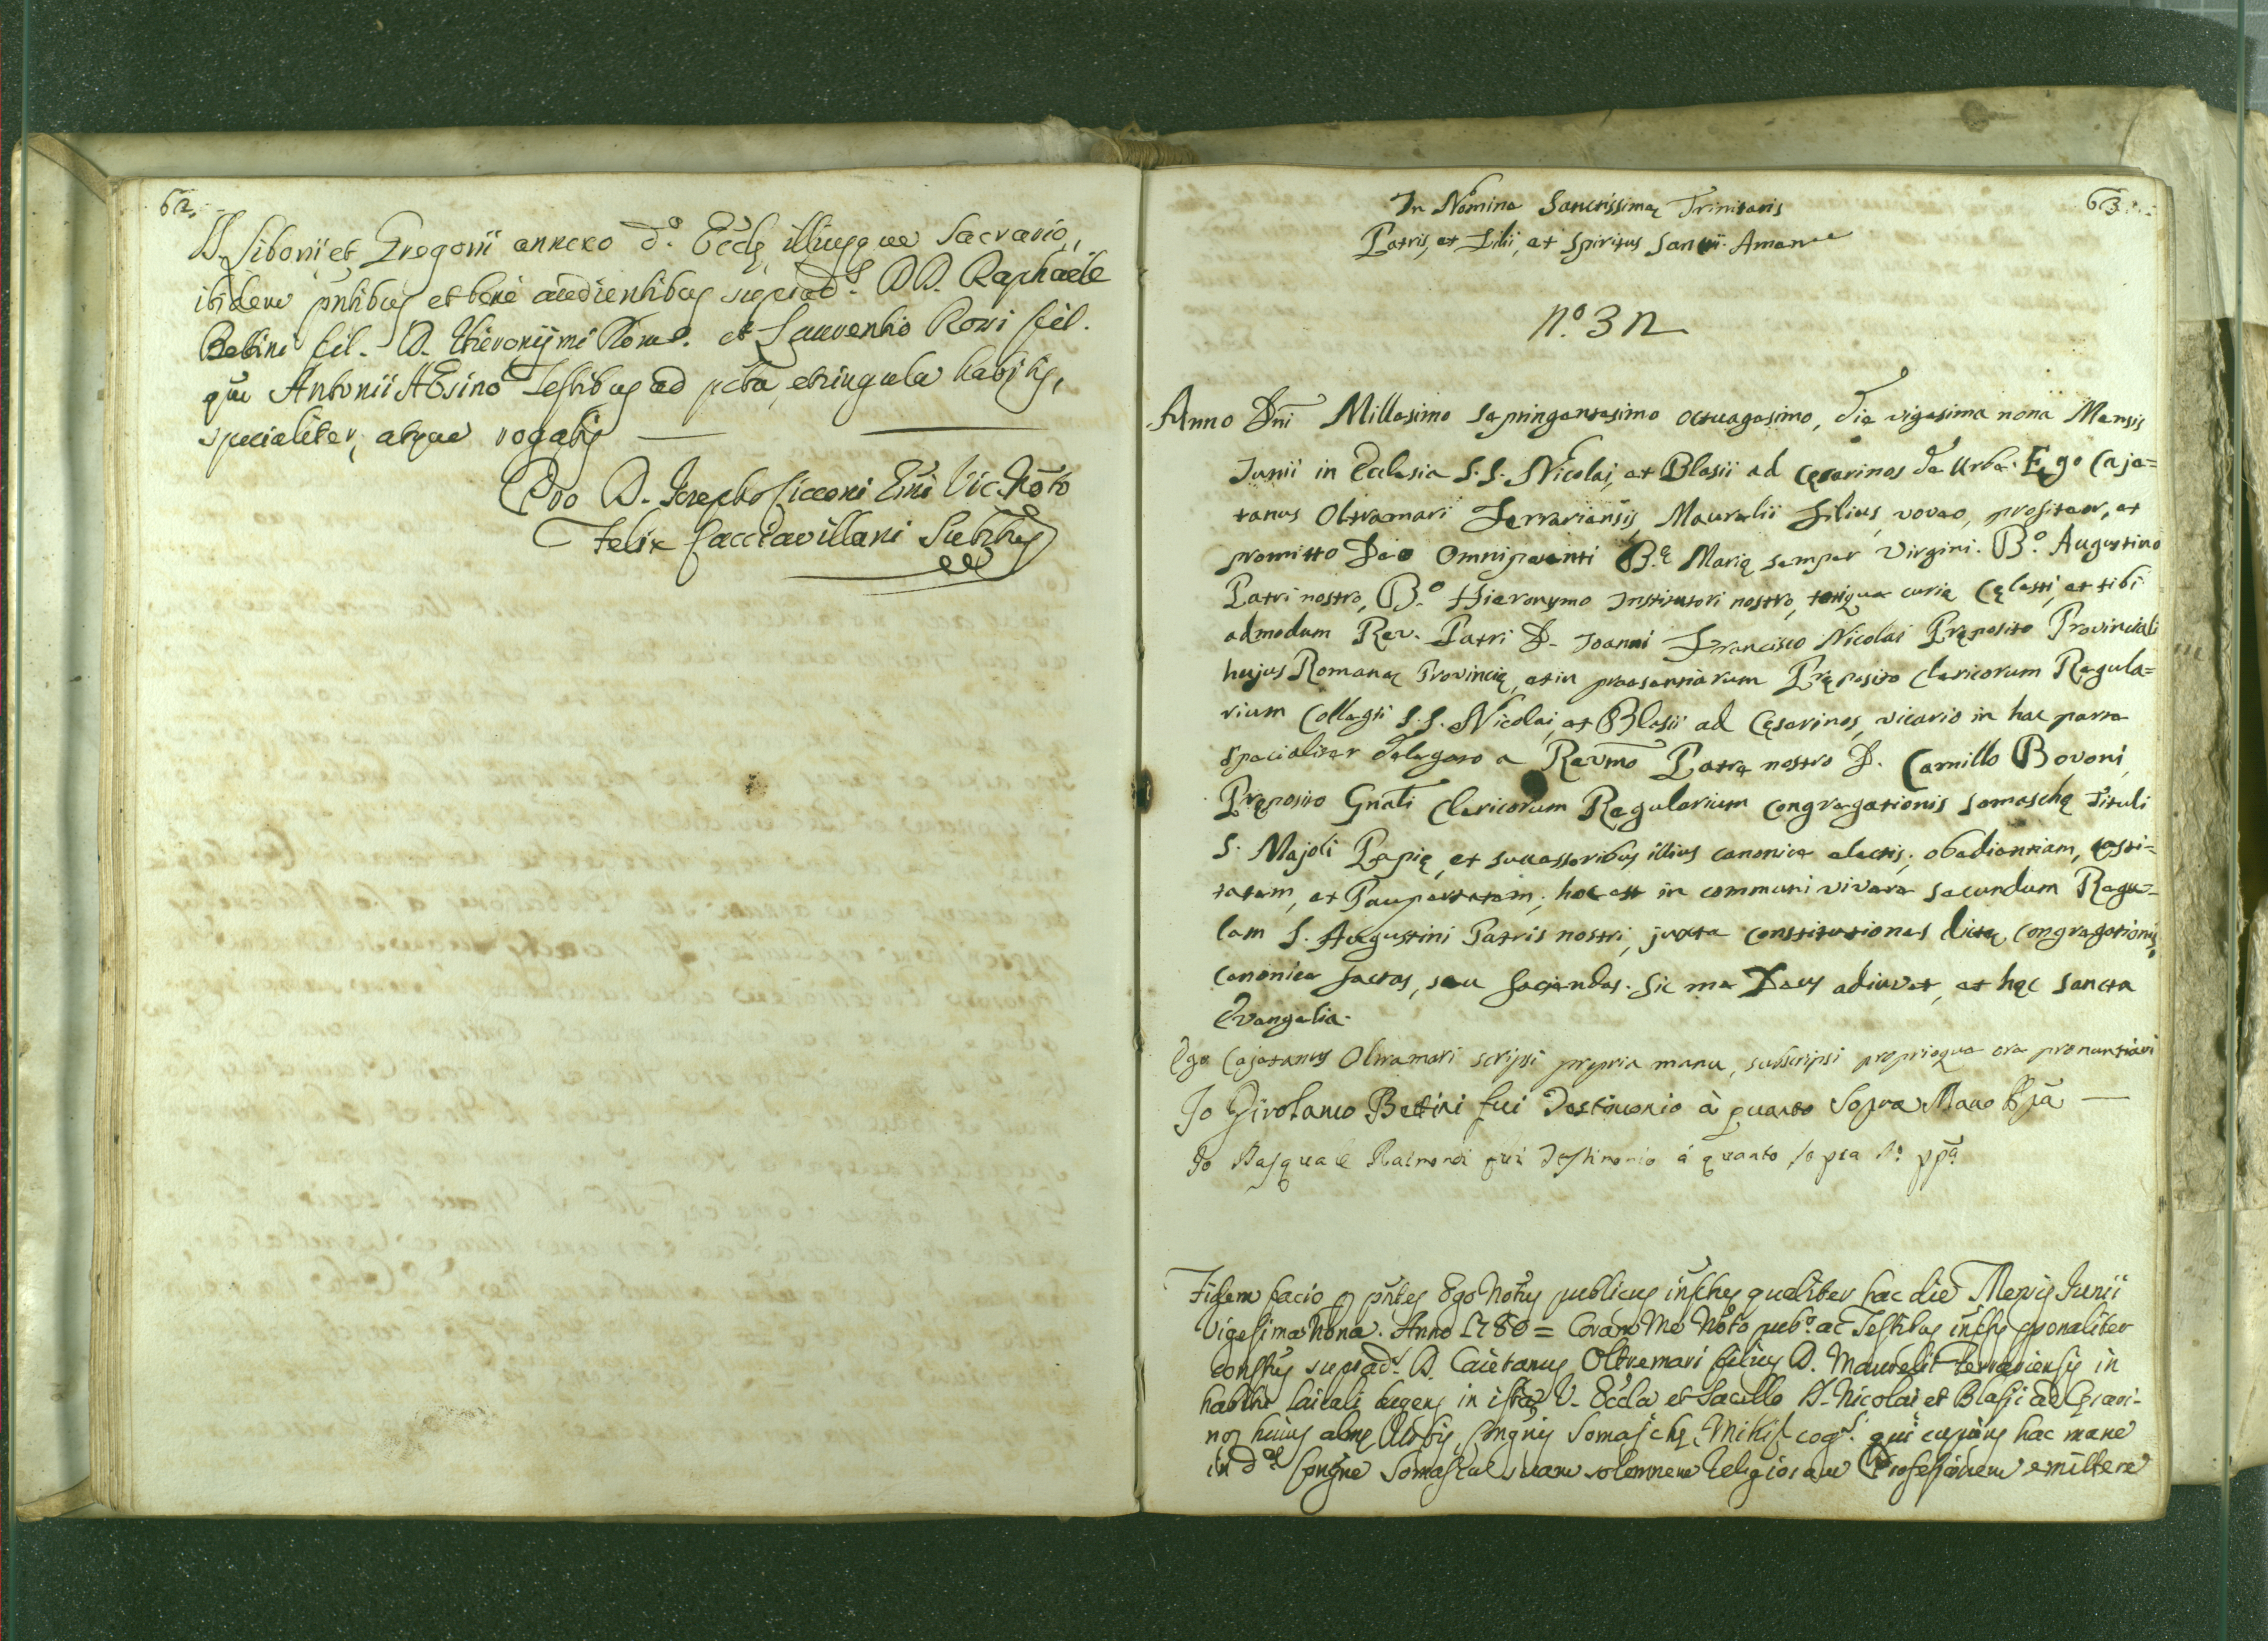 62.
D. Siboni et Gregorii annexo d.o Eccle, illiusque Sacrario,
ibidem pntibus et bene audientibus suprad.s DD. Raphaele
Bettini fil. D. Hieronymi Rom.o et Laurentio Rossi fil.
qm Antonii AEsino Testibus ad pcta, et singula habitis,
specialiter, atque rogatis —
Pro D. Josepho Cicconi Emi Vic. Noto
Felix Cacciavillani Subtus
63
In Nomine Sanctissimae Trinitatis
Patris, et Filii, et Spiritus Sancti. Amen
N.o 32
Anno Dni Millesimo septingentesimo octuagesimo, die vigesima nona Mensis
Junii in Ecclesia S.S. Nicolai, et Blasii ad Cęsarinos de Urbe. Ego Caje=
tanus Oltramari Ferrariensis, Maurelii Filius, voveo, profiteor, et
promitto Deo Omnipotenti B.ę Marię semper Virgini. B.o Augustino
Patri nostro, B.o Hieronymo Institutori nostro, totique curię Cęlesti, et tibi
admodum Rev. Patri D. Joanni Francisco Nicolai Pręposito Provinciali
hujus Romanae Provincię, et in praesentiarum Pręposito Clericorum Regula=
rium Collegii S.S. Nicolai, et Blasii ad Cęsarinos, vicario in hac parte
specialiter delegato a Revmo Patre nostro D. Camillo Bovoni
Pręposito Gnali Clericorum Regularium Congregationis Somaschę Tituli
S. Majoli Papię, et successoribus illius canonice electis; obedientiam, casti=
tatem, et Paupertatem; hoc est in communi vivere secundum Regu=
lam S. Augustini Patris nostri, juxta Constitutiones dictae Congregationis,
Canonice factas, seu faciendas. Sic me Deus adiuvet, et hęc Sancta
Evangelia.
Ego Cajetanus Oltramari scripsi propria manu, subscripsi proprioque ore pronuntiavi
Io Girolamo Bettini fui Testimonio à quanto Sopra Mano ppa —
Io Pasquale Raimondi fui Testimonio à quanto sopra M.o ppa
Fidem facio p pntes Ego Notus publicus infrus qualiter hac die Mensis Junii
Vigesima Nona. Anno 1780 = Coram Me Noto pub.o ac Testibus infris psonaliter
constus suprad.s D. Caietanus Oltremari filius D. Maurelii Ferrariensis in
habitu laicali degens in ista V. Eccla et Sacello D. Nicolai et Blasii ad Cęsari=
nos huius almę Urbis, Congnis Somaschę, Mihi cog.s qui cupiens hac mane
in d.a Congne Somascae suam solemnem religiosam Professionem emittere